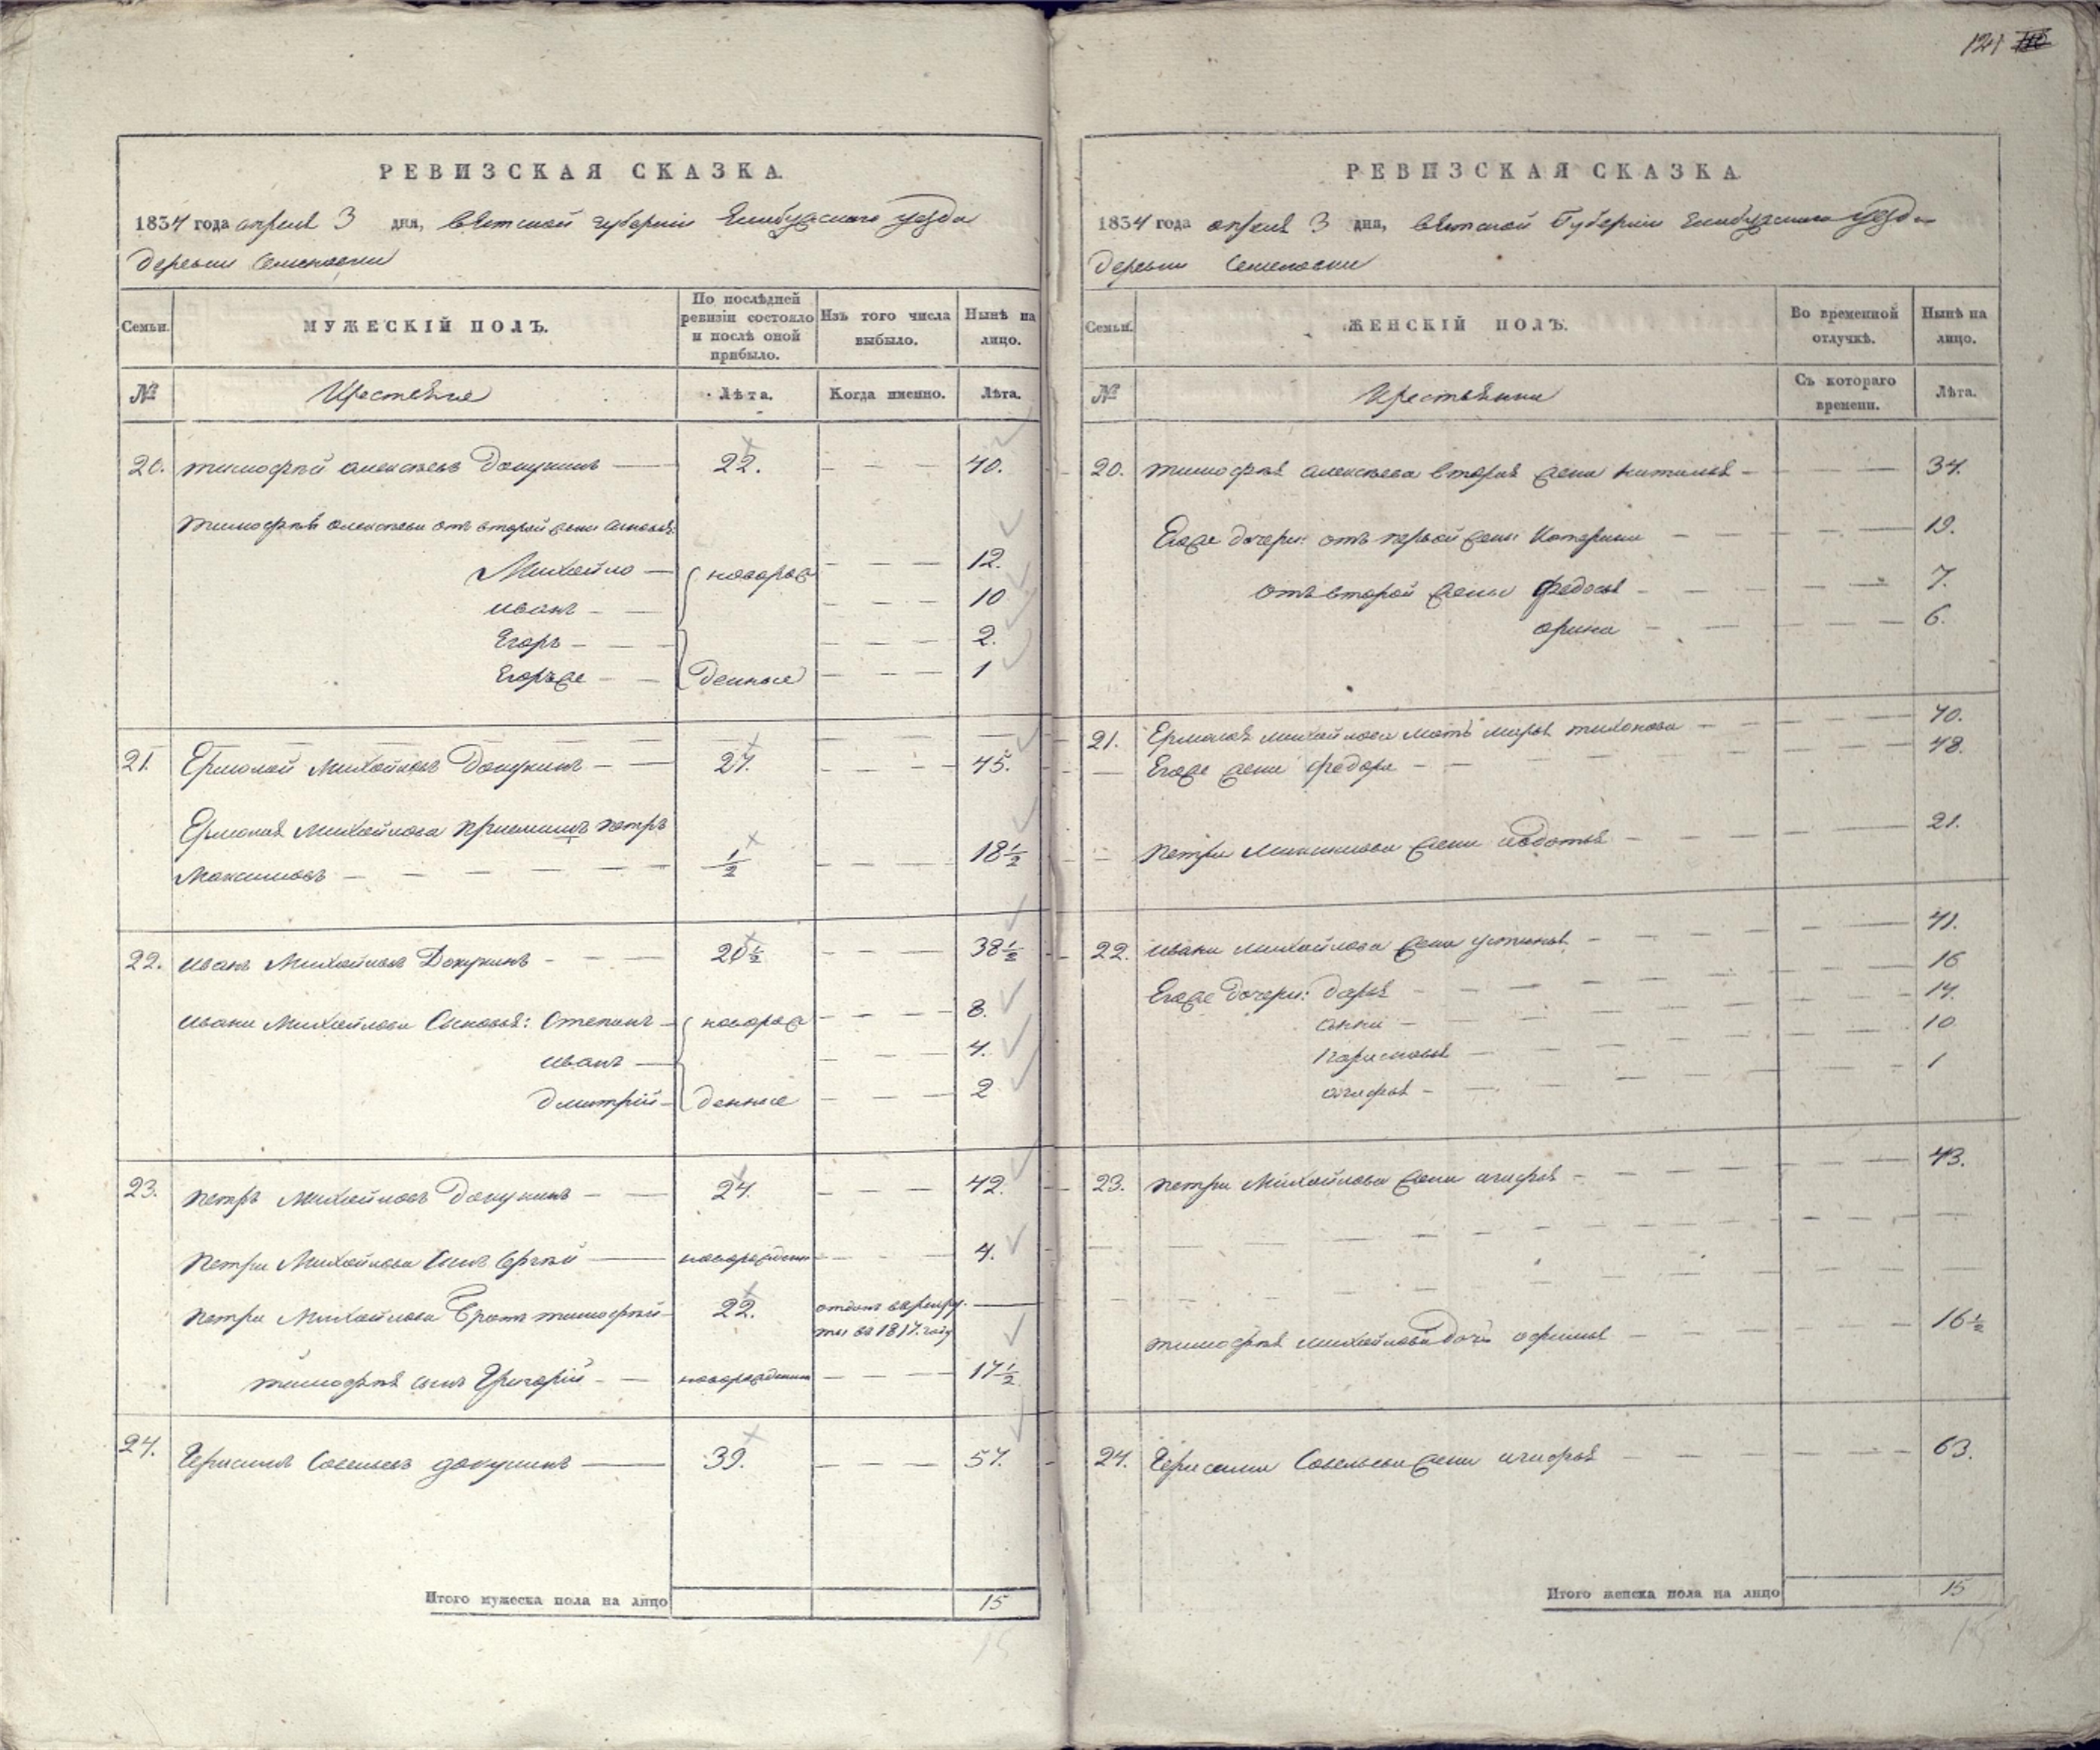 121 110
РЕВИЗСКАЯ СКАЗКА.
1834 года апреля 3 дня, Вятской губернии Елабужскаго уезда
деревни
Семьи.
МУЖЕСКІЙ ПОЛЪ.
По послѣдней ревизіи состояло и послѣ оной прибыло.
Изъ того числа выбыло.
Нынѣ на лицо.
№
Крестьяне
Лѣта.
Когда именно.
Лѣта.
20. тимофѣй алексѣевъ Докукинъ 22. — — — 40.
тимофѣя алексѣева отъ второй жены сыновья:
Михайло — новорож — — — 12.
иванъ — — — — — 10
Егоръ — — — — — 2.
Егоръже — — денные — — — 1
21. Ермолай Михайловъ Докукинъ — — 27. — — — 45.
Ермолая Михайлова приемышъ петръ
Максимовъ — — — — — 1/2 — — — 18 1/2
22. иванъ Михайловъ Докукинъ — — — 20 1/2 — — — 38 1/2
ивана Михайлова Сыновья: Степанъ — новорож — — — 8.
иванъ — — — — 4.
дмитрій — денные — — — 2
23. петръ Михайловъ Докукинъ — — 24. — — — 42.
петра Михайлова сынъ Сргѣй — новорожден — — — 4.
петра Михайлова братъ тимофѣй — 22. отданъ врекру-
ты въ 1817. году
тимофѣя сынъ Григорій — — новорожденный — — — 17 1/2
24. Герасимъ Савельевъ докукинъ — 39. — — — 57.
Итого мужеска пола на лицо 15
РЕВИЗСКАЯ СКАЗКА.
1834 года апреля 3 дня, Вятской Губернии Елабужскаго уезда
деревни
Семьи.
ЖЕНСКІЙ ПОЛЪ.
Во временной отлучкѣ.
Нынѣ на лицо.
№
Крестьянки
Съ котораго времени.
Лѣта.
20. тимофѣя алексѣева вторая жена наталья — — — — 34.
Егоже дочери: отъ первой жены Катерина — — — — — 19.
отъ второй жены федосья — — — — 7.
арина — — — — — — 6.
21. Ермолая михайлова мать марья тихонова — — — — — 70.
Егоже жена федора — — — — — 48.
Петра Максимова жена авдотья — — — — 21.
22. ивана михайлова жена устинья — — — — — 41.
Егоже дочери: дарья — — — — — 16
анна — — — — — 14.
Парасковья — — — — — 10
агафья — — — — — 1
23. петра Михайлова жена агафья — — — — — 43.
тимофѣя михайлова дочь афимья — — — — — 16 1/2
24. Герасима Савельева жена агафья — — — — — 63.
Итого женска пола на лицо 15